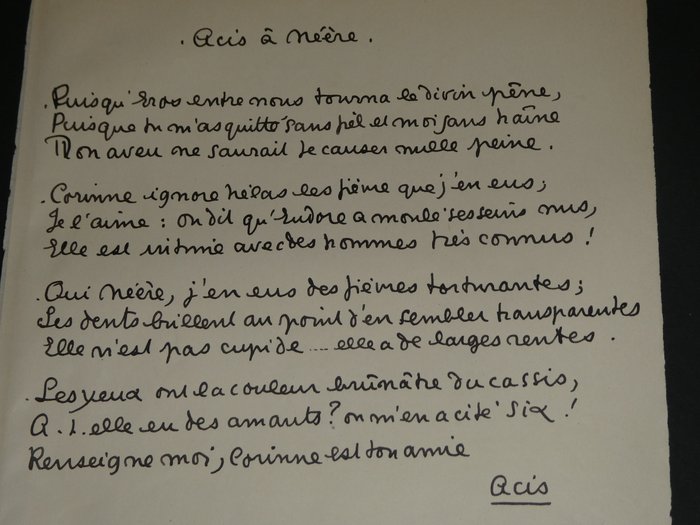 . Acis à Néère .
. Puisqu'Eros entre nous tourna le divin pêne,
Puisque tu m'as quitté sans fiel et moi sans haîne
Mon aveu ne saurait te causer nulle peine .
. Corinne ignore hélas les fièvre que j'en eus ;
Je l'aime : on dit qu'Eudore a moulé ses seins nus,
Elle est intimie avec des hommes très connus !
. Oui Néère, j'en eus des fièvres torturantes ;
Ses dents brillent au point d'en sembler transparentes
Elle n'est pas cupide .... elle a de larges rentes .
. Ses yeux ont la couleur brûnâtre du cassis,
A.t.elle eu des amants ? on m'en a cité six !
Renseigne moi, Corinne est ton amie
Acis